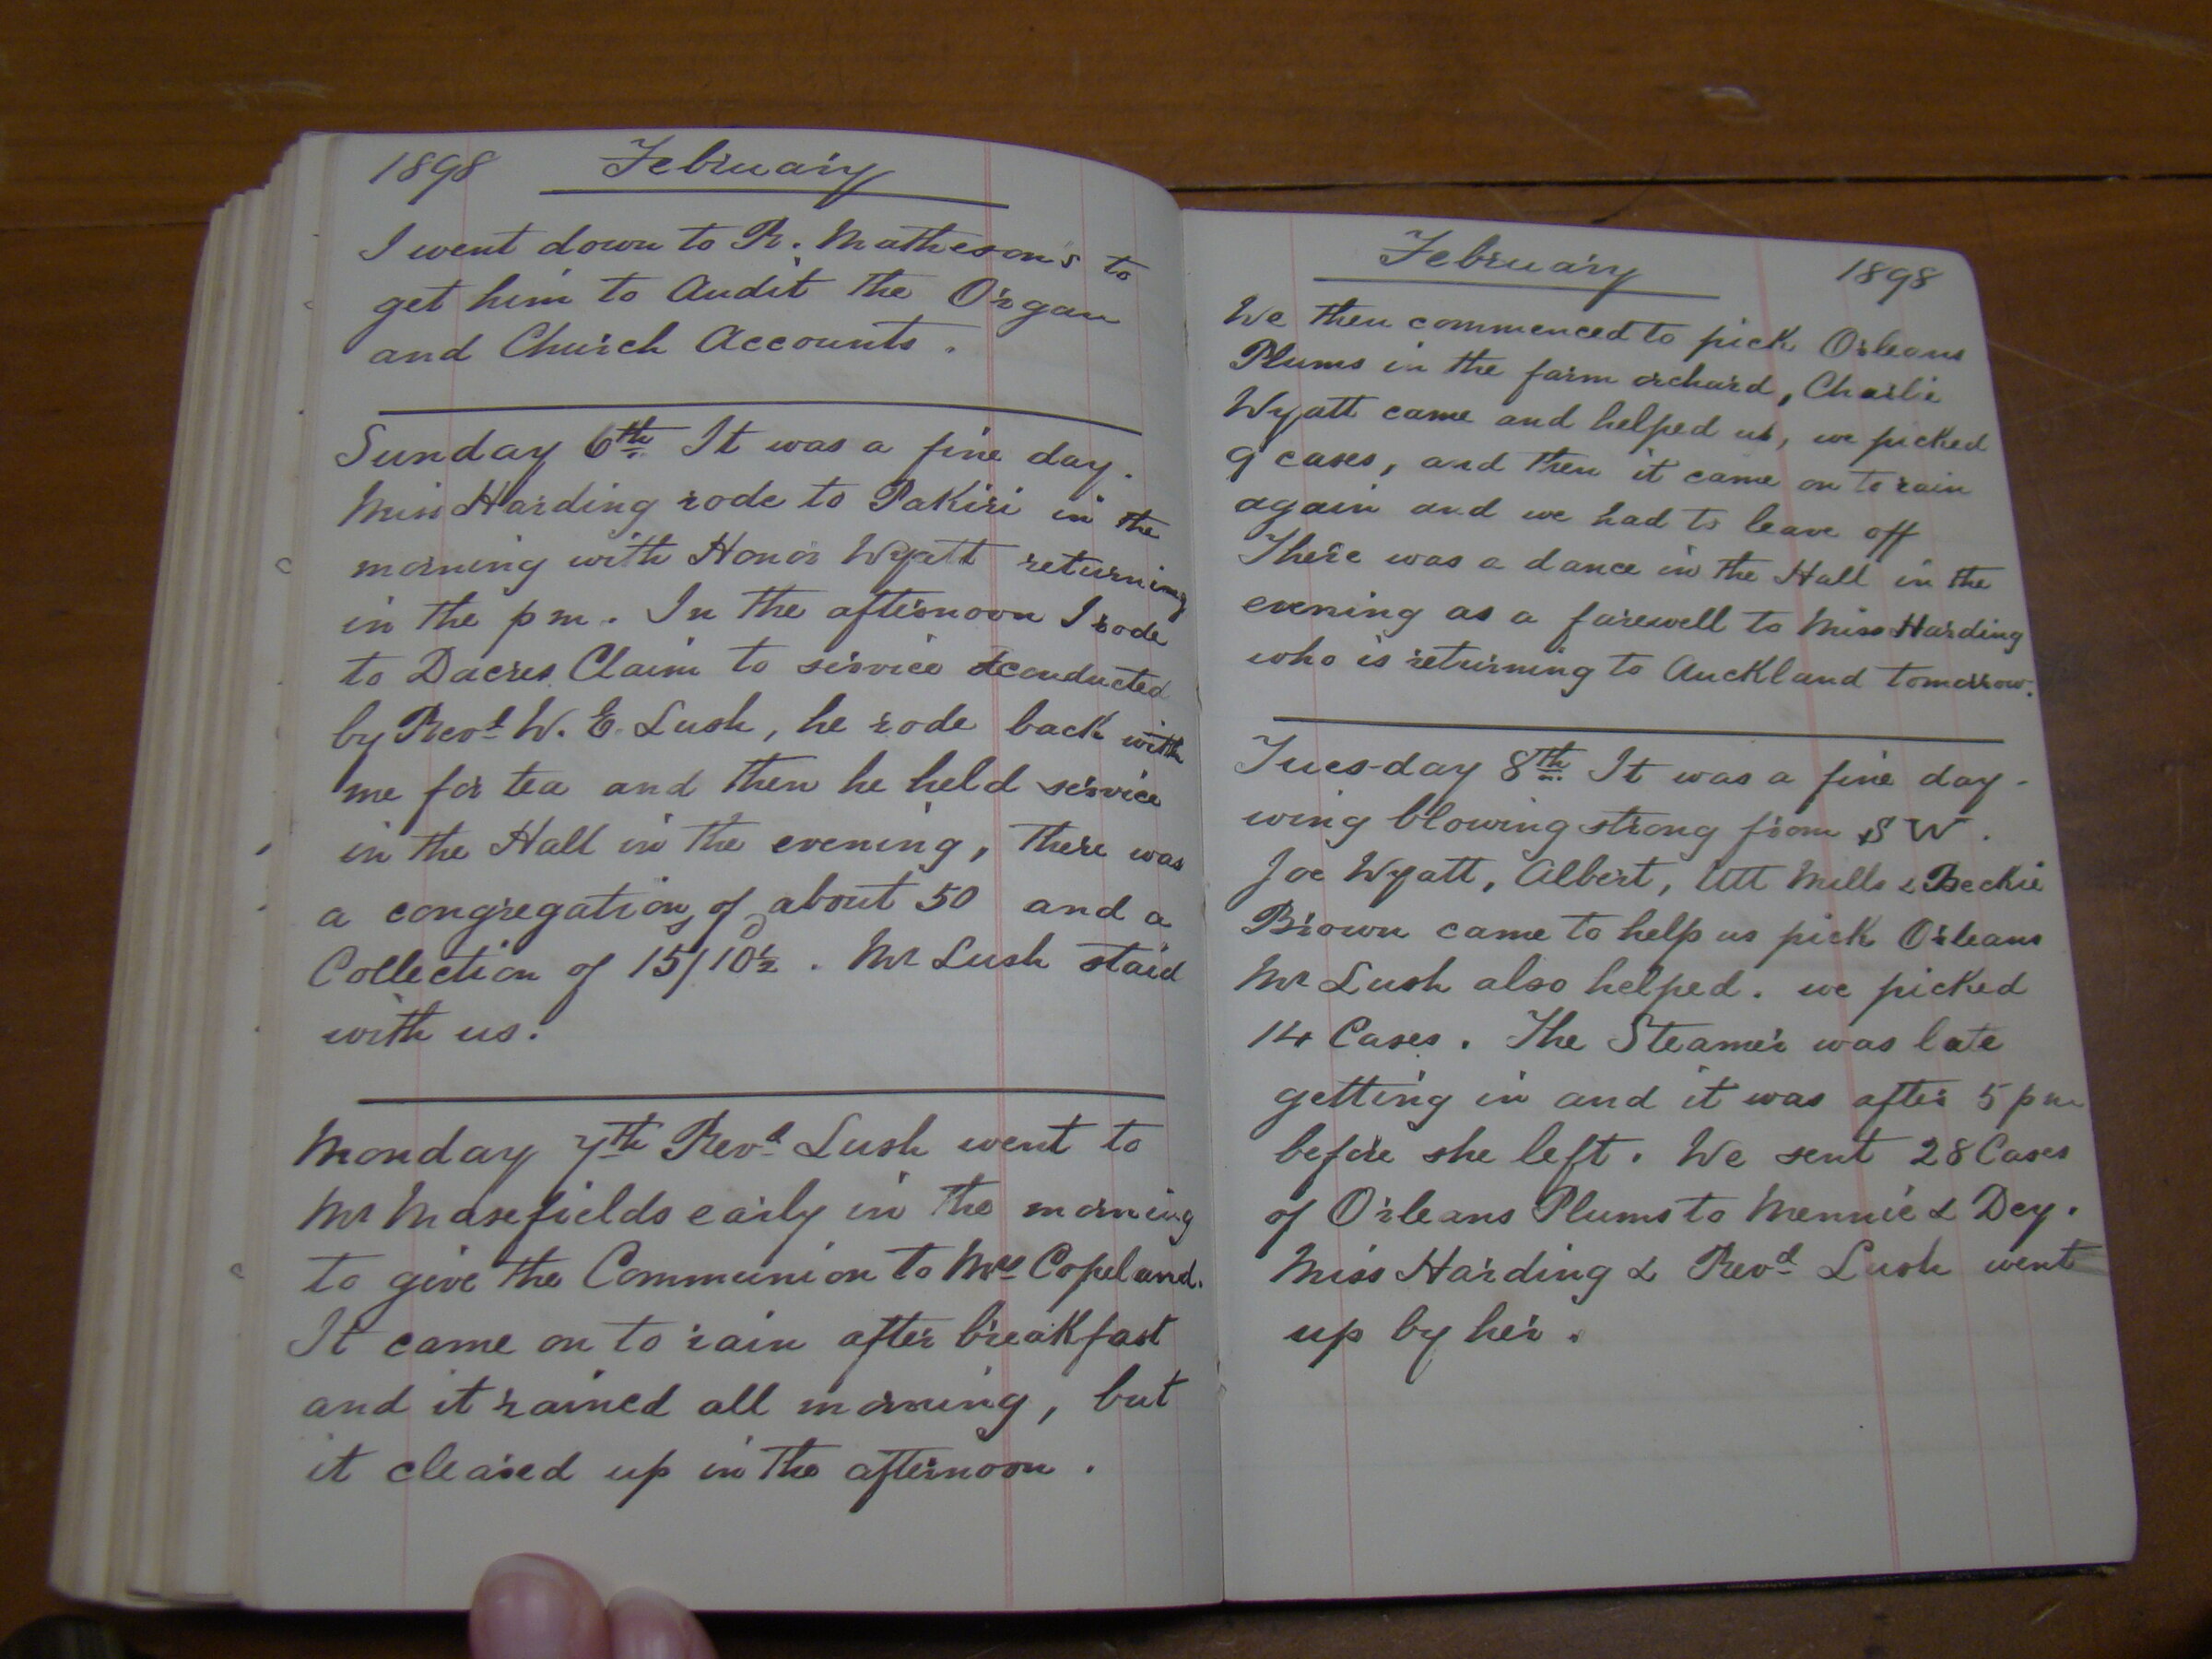 1898 February
I went down to R. Matheson's to
get him to Audit the Organ
and Church Accounts.
Sunday 6th It was a fine day.
Miss Harding rode to Pakiri in the
morning with Honor Wyatt returning
in the pm. In the afternoon I rode
to Dacres Claim to service conducted
by Revd W. E. Lush, he rode back with
me for tea and then he held service
in the Hall in the evening, there was
a congregation of about 50 and a
Collection of 15/10½. Mr Lush staid
with us.
Monday 7th Revd Lush went to
Mr Masefields early in the morning
to give the Communion to Mrs Copeland.
It came on to rain after breakfast
and it rained all morning, but
it cleared up in the afternoon.
February 1898
We then commenced to pick Orleans
Plums in the farm orchard, Charlie
Wyatt came and helped us, we picked
9 cases, and then it came on to rain
again and we had to leave off
There was a dance in the Hall in the
evening as a farewell to Miss Harding
who is returning to Auckland tomorrow.
Tuesday 8th It was a fine day -
wing blowing strong from S W.
Joe Wyatt, Albert, Mills & Beckie
Brown came to help us pick Orleans
Mr Lush also helped. we picked
14 Cases. The Steamer was late
getting in and it was after 5 pm
before she left. We sent 28 Cases
of Orleans Plums to Mennie & Dey.
Miss Harding & Revd Lush went
up by her.